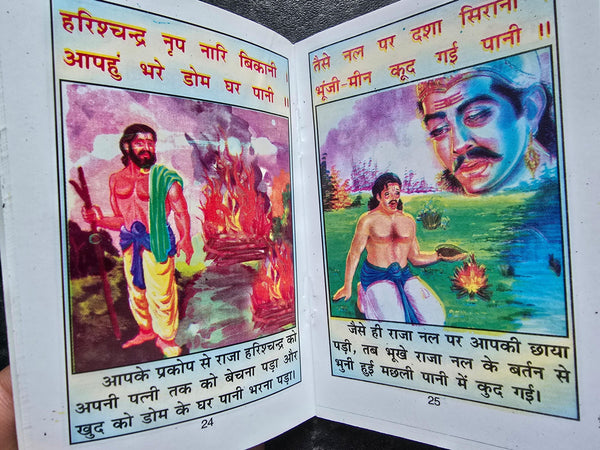 हरिश्चन्द्र नृप नारि बिकानी ।
आपहुं भरे डोम घर पानी ॥
आपके प्रकोप से राजा हरिश्चन्द्र को
अपनी पत्नी तक को बेचना पड़ा और
खुद को डोम के घर पानी भरना पड़ा।
24
तैसे नल पर दशा सिरानी
भूंजी-मीन कूद गई पानी ॥
जैसे ही राजा नल पर आपकी छाया
पड़ी, तब भूखे राजा नल के बर्तन से
भुनी हुई मछली पानी में कूद गई।
25